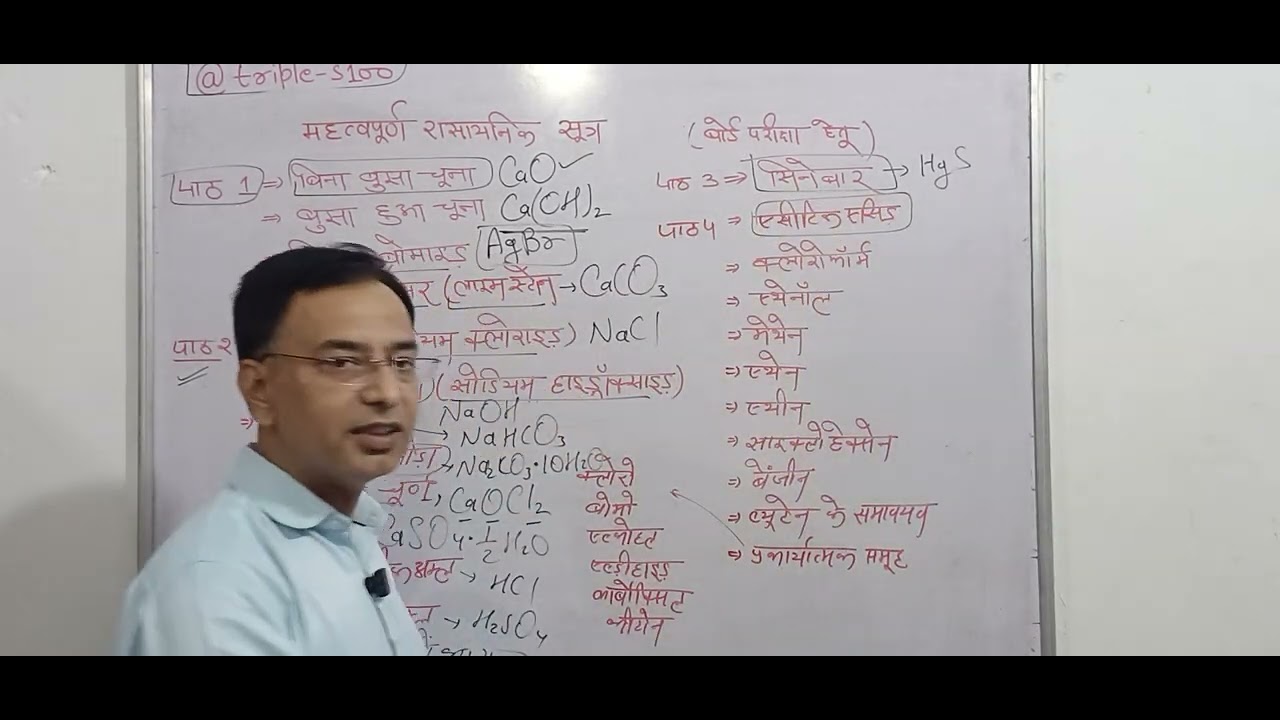 @triple-S100
महत्वपूर्ण रासायनिक सूत्र
पाठ 1 ⇒ बिना बुझा चूना CaO ✓
⇒ बुझा हुआ चूना Ca(OH)2
ब्रोमाइड AgBr
(लाइम स्टोन → CaCO3
पाठ २
क्लोराइड) NaCl
(सोडियम हाइड्रॉक्साइड)
NaOH
→ NaHCO3
→ Na2CO3·10H2O
चूर्ण, CaOCl2
CaSO4·1/2 H2O
→ HCl
→ H2SO4
क्लोरो
ब्रोमो
एल्कोहल
एल्डीहाइड
कार्बोक्सिल
कीटोन
(बोर्ड परीक्षा हेतू)
पाठ 3 ⇒ सिनेबार → HgS
पाठ ५ ⇒ एसीटिक एसिड
⇒ क्लोरोफॉर्म
⇒ एथेनॉल
⇒ मेथेन
⇒ एथेन
⇒ एथीन
⇒ साइक्लोहेक्सेन
⇒ बेंजीन
⇒ ब्यूटेन के समावयव
⇒ प्रकार्यात्मक समूह